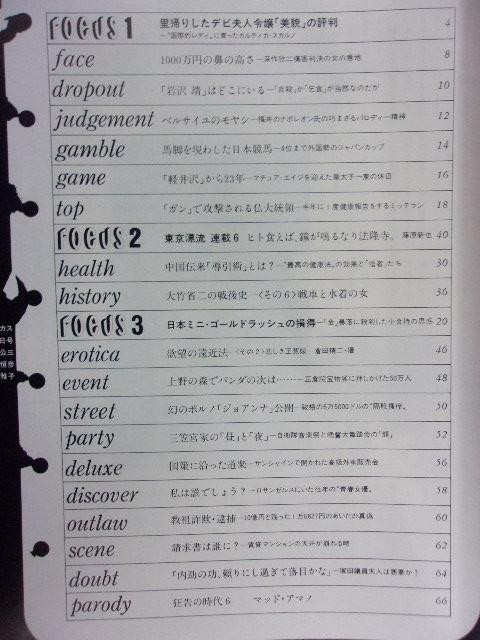 FOCUS 1 里帰りしたデビ夫人令嬢「美貌」の評判 4
―"国際的レディ"に育ったカルティカ・スカルノ
face 1000万円の鼻の高さ―深作欣二傷害判決の女の意地 8
dropout 「岩沢 靖」はどこにいる―「自殺」か「乞食」が当然なのだが 10
judgement ベルサイユのモヤシ―福井のナポレオン氏の巧まざるパロディー精神 12
gamble 馬脚を現わした日本競馬―4位まで外国勢のジャパンカップ 14
game 「軽井沢」から23年―マチュア・エイジを迎えた皇太子一家の休日 16
top 「ガン」で攻撃される仏大統領―半年に1度健康報告をするミッテラン 18
FOCUS 2 東京漂流 連載6 ヒト食えば、鐘が鳴るなり法隆寺。 藤原新也 40
health 中国伝来「導引術」とは?―"最高の健康法"の効果と「信者」たち 30
history 大竹省二の戦後史―〈その6〉戦車と水着の女 36
FOCUS 3 日本ミニ・ゴールドラッシュの損得―「金」暴落に殺到した小金持の思惑 20
erotica 欲望の遠近法―〈その2〉悲しき正装娘 倉田精二・撮 46
event 上野の森でパンダの次は………正倉院宝物展に押しかけた50万人 48
street 幻のポルノ「ジョアンナ」公開―破格の6万5000ドルの"隠靴獲得。 50
party 三笠宮家の「昼」と「夜」―自衛隊音楽祭と晩餐大舞踏会の「顔」 52
deluxe 国策に沿った道楽―サンシャインで開かれた高級外車販売会 56
discover 私は誰でしょう?―ロサンゼルスにいた往年の"青春女優。 58
outlaw 教祖詐欺・逮捕―10億円と残った1万6827円のあいだの真偽 60
scene 請求書は誰に?―賃貸マンションの天井が崩れる時 62
doubt 「内助の功、頼りにし過ぎて落目かな」―塚田議員夫人は悪妻か? 64
parody 狂告の時代6 マッド・アマノ 66
カス
日号
公三
恒彦
雅子